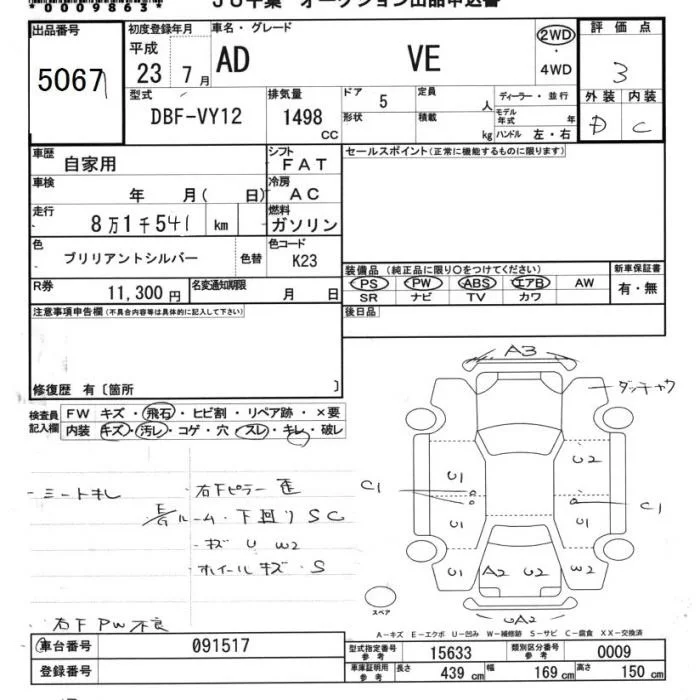 *0009863*
JU千葉 オークション出品申込書
出品番号 初度登録年月 車名・グレード 評価点
5067 平成 23 7月 AD VE 2WD 4WD 3
型式 排気量 ドア 定員 ディーラー・並行 外装 内装
DBF-VY12 1498 CC 5 人 モデル年式 年 D C
形状 積載 kg ハンドル 左・右
車歴 自家用 シフト FAT セールスポイント(正常に機能するものに限ります)
車検 年 月( 日) 冷房 AC
走行 8万1千541 km 燃料 ガソリン
色 ブリリアントシルバー 色替 色コード K23
装備品(純正品に限り〇をつけてください) 新車保証書
R券 11,300円 名変通知期限 月 日 PS PW ABS エアB AW 有・無
SR ナビ TV カワ
注意事項申告欄(不具合内容等は具体的に記入して下さい) 後日品
修復歴 有〔箇所 〕
検査員記入欄 FW キズ・飛石・ヒビ割・リペア跡・×要
内装 キズ・汚レ・コゲ・穴・スレ・キレ・破レ
A3
U1 U2
C1 C1
U1 U1
U1 A2 U2 W2
UA2
スペア
・シートキレ ・右下ピラー歪
ルーム・下回りSC
・キズ U W2
・ホイールキズ・S
右下PW不良
A-キズ E-エクボ U-凹み W-補修跡 S-サビ C-腐食 XX-交換済
車台番号 091517 型式指定番号 参考 15633 類別区分番号 参考 0009
登録番号 車庫証明用 参考 長さ 439 cm 幅 169 cm 高さ 150 cm